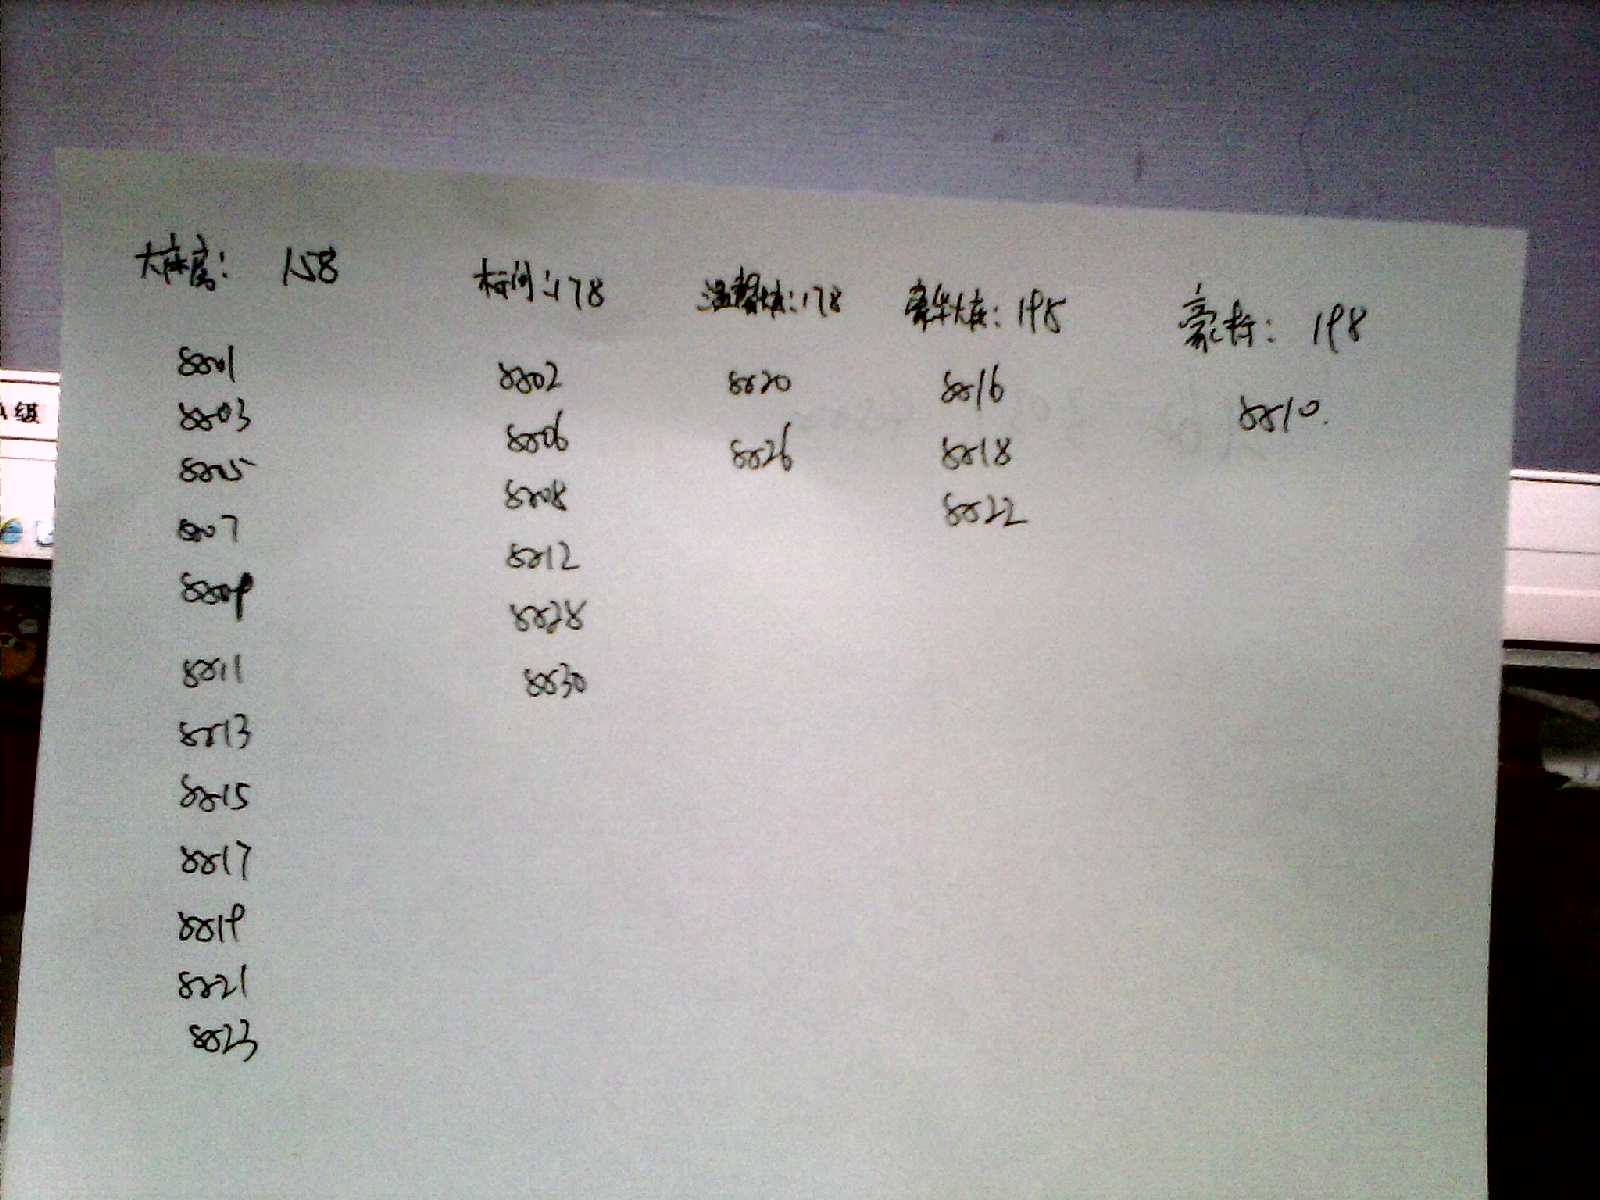 大床房: 158
8801
8803
8805
8807
8809
8811
8813
8815
8817
8819
8821
8823
标间: 178
8802
8806
8808
8812
8828
8830
温馨大床: 178
8820
8826
豪华大床: 198
8816
8818
8822
豪标: 198
8810.
级